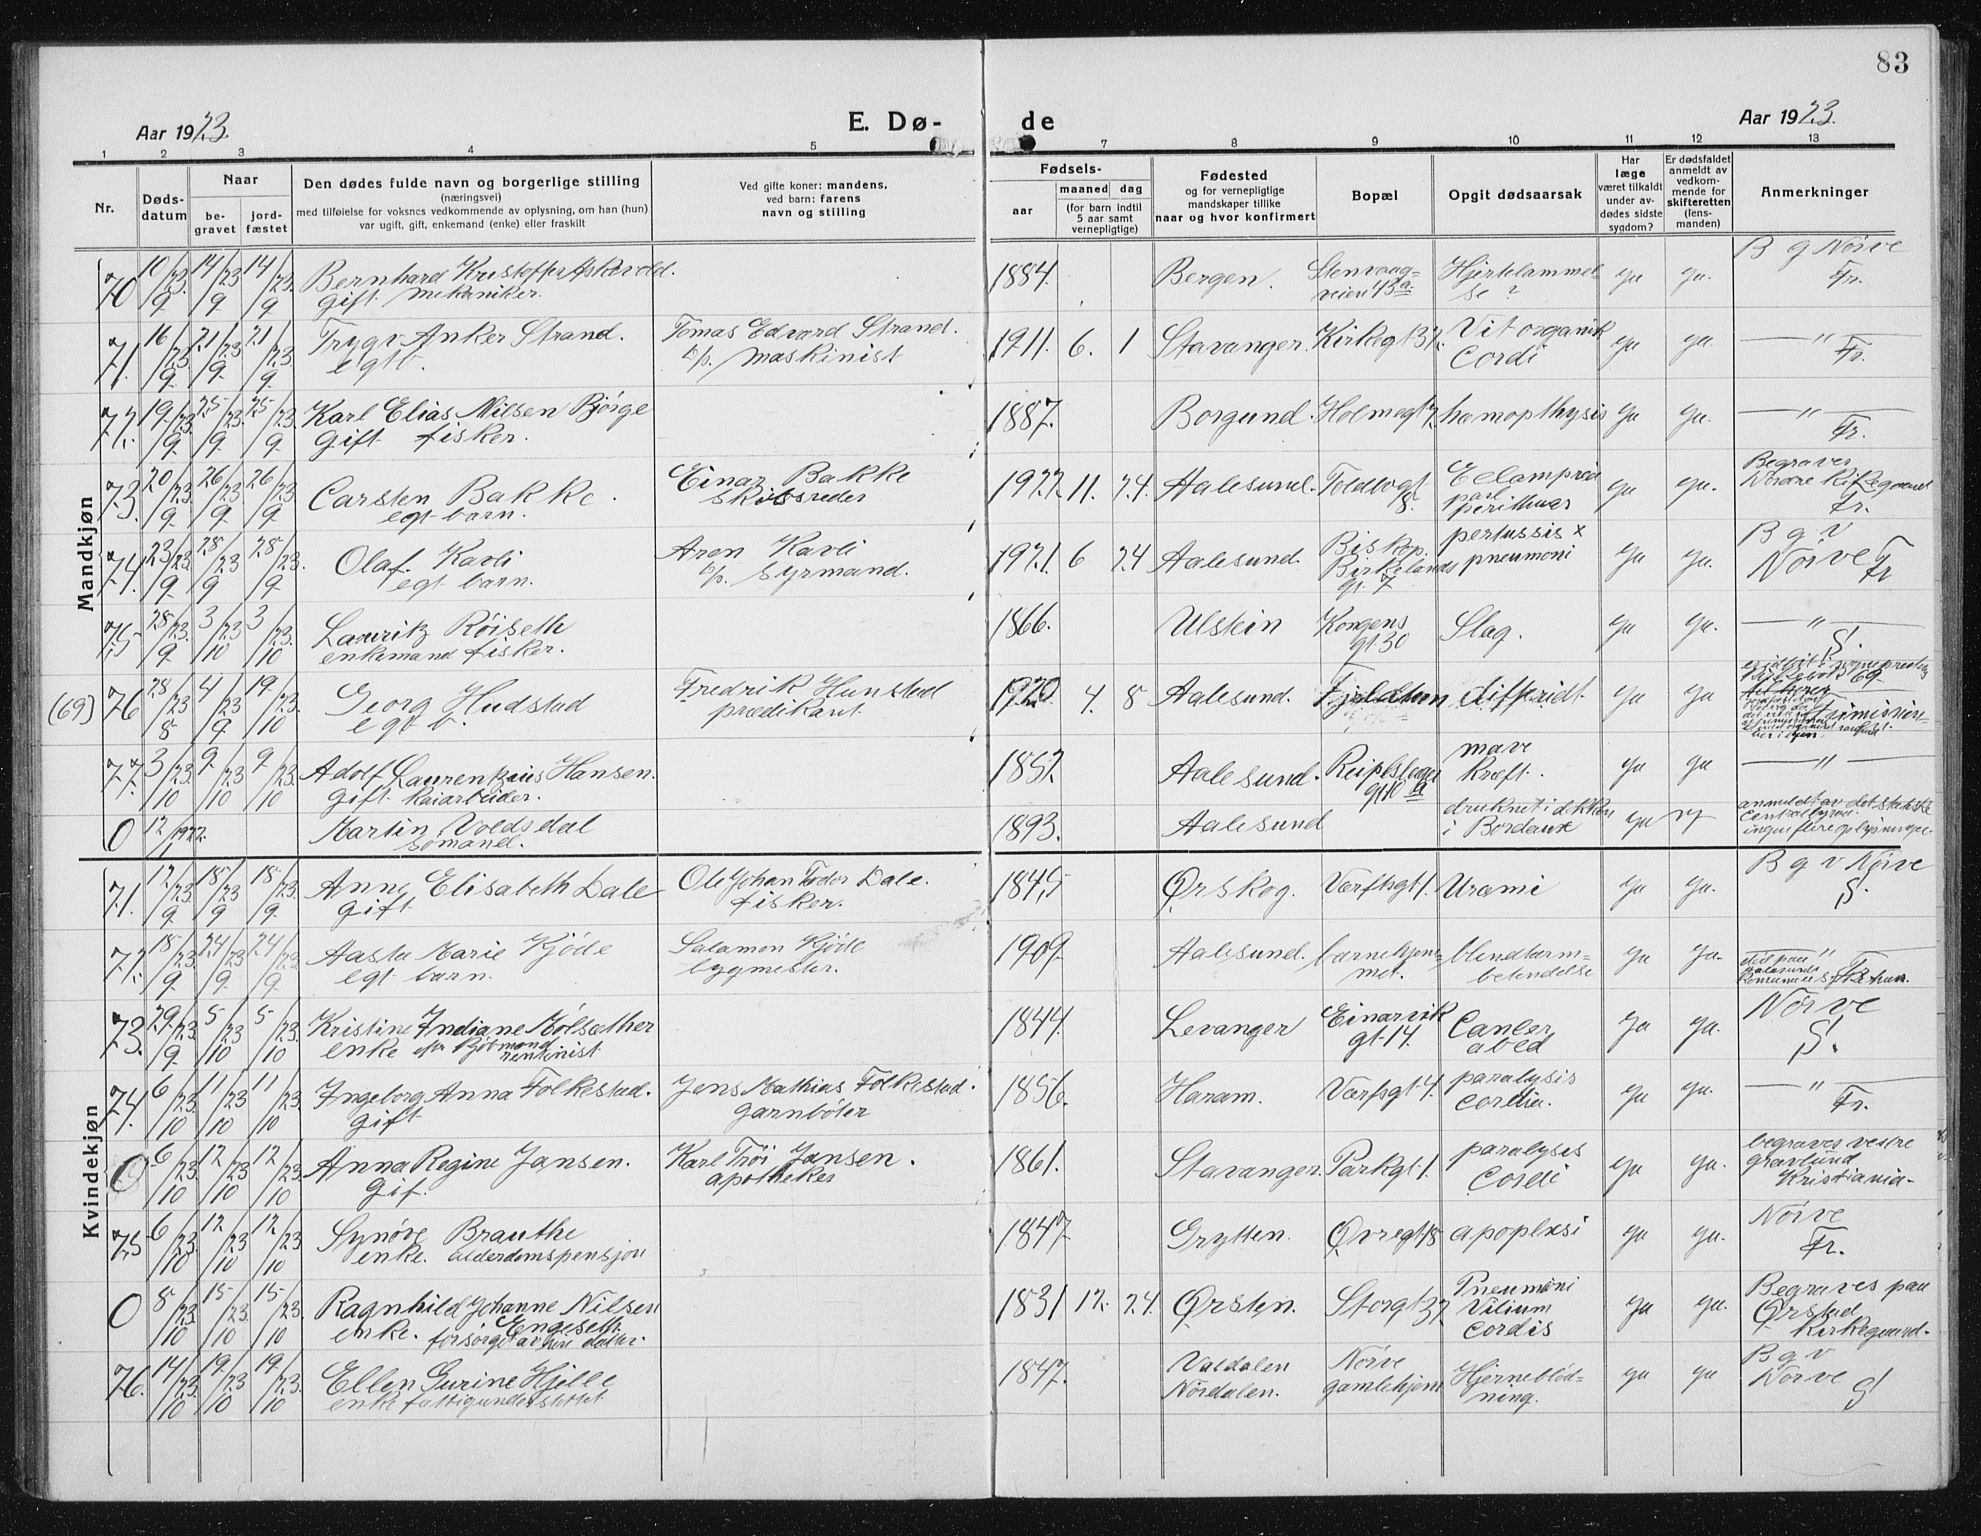 83
Aar 1923.
E. Dø-
de
Aar 1923.
1 2 3 4 5 7 8 9 10 11 12 13
Nr.
Døds-
datum
Naar
be-
gravet
jord-
fæstet
Den dødes fulde navn og borgerlige stilling
(næringsvei)
med tilføielse for voksnes vedkommende av oplysning, om han (hun)
var ugift, gift, enkemand (enke) eller fraskilt
Ved gifte koner: mandens,
ved barn: farens
navn og stilling
Fødsels-
aar
maaned
dag
(for barn indtil
5 aar samt
vernepligtige)
Fødested
og for vernepligtige
mandskaper tillike
naar og hvor konfirmert
Bopæl
Opgit dødsaarsak
Har
læge
været tilkaldt
under av-
dødes sidste
sygdom?
Er dødsfaldet
anmeldt av
vedkom-
mende for
skifteretten
(lens-
manden)
Anmerkninger
Mandkjøn
70 10/9 23. 14/9 23 14/9 23. Bernhard Kristoffer Askevold. 1884. Bergen. Stenvaag- Hjertelammel- ya ya. B g Nörve
gift. mekaniker. veien 43a. se ? Fr.
71. 16/9 23 21/9 23 21/9 23. Trygv Anker Strand. Tomas Edvard Strand. 1911. 6. 1 Stavanger. Kirkegt 37. Vit organik ya ya. — " —
egt b. b/p. maskinist Cordi Fr.
72. 19/9 23. 25/9 23. 25/9 23. Karl Elias Nilsen Bjørge 1887. Borgund. Holmegt 7. hæmopthysis ya ya. — " —
gift fisker. Fr.
73. 20/9 23. 26/9 23 26/9 23. Carsten Bakke. Einar Bakke 1922. 11. 24. Aalesund. Toldbogt Eclampsia ya ya. Begraves
egt barn. skibsreder 8. Nørdre Kirkegaard
Fr.
74. 23/9 23. 28/9 23 28/9 23. Olaf. Kavli Aron Kavli 1921. 6 24 Aalesund. Biskop. pertussis x ya ya. B g v
egt barn. b/p. styrmand. Birkelands pneumoni Nörve Fr
gt. 7
75 28/9 23. 3/10 23 3/10 23. Lauritz Röiseth 1866. Ulstein Kongens Slag. ya ya. — " —
enkemand fisker. gt 30 S.
(69) 76 28/8 23 4/9 23 19/10 23. Georg Hudstad Fredrik Hunstad 1920. 4. 8 Aalesund. difteridt. ya ya.
egt b. prædikant.
77. 3/10 23 9/10 23 9/10 23. Adolf Laurentzius Hansen. 1857. Aalesund. Reipslager mave ya ya — " —
gift kaiarbeider. gt 10 a kræft.
0 12/1 1922. Martin Voldsdal 1893. Aalesund druknet i dokken ya anmeldt av det statistiske
sømand. i Bordaux Centralbyraa.
ingen flere oplysninger.
Kvindekjøn
71. 12/9 23. 18/9 23 18/9 23. Anne Elisabeth Dale Ole Johan Dale. 1845 Ørskog. Værftsgt 1. Uræmi ya ya. B g v Nörve
gift fisker. S.
72. 18/9 23. 24/9 23 24/9 23 Aasta Marie Kjöde Salamon Kjöde 1909. Aalesund. barnehjem- blindtarm- ya ya. — " —
egt barn. bygmester. met. betendelse
73. 29/9 23. 5/10 23 5/10 23. Kristine Indiane Mölsæther 1844. Levanger Einarvik Canser ya ya. Nörve
enke eftr kjöbmand gt 14. abed S.
rentenist
74. 6/10 23. 11/10 23 11/10 23. Ingeborg Anna Folkestad. Jens Mathias Folkestad. 1856. Haram. Værfsgt 4. paralysis ya ya. — " —
gift garnböter cordia. Fr.
0 6/10 23. 12/10 23 12/10 23. Anna Regine Jansen. Karl Jansen. 1861. Stavanger. Parkgt 1. paralysis ya ya. begraves vestre
gif. apotheker cordi gravlund
Kristiania.
75 6/10 23. 12/10 23 12/10 23 Synöve Brauthe 1847 Grytten. Øvregt 18 apoplexi ya ya. Nörve
enke. alderdomspensjon Fr.
0 8/10 23 15/10 23 15/10 23. Ragnhild Johanne Nilsen 1831 12. 24. Ørsten. Storgt 37 Pneumöni ya ya. Begraves paa
enke. Engeseth. Vitium Ørstad
forsörget av sine datter. cordis Kirkegaard.
76. 14/10 23. 19/10 23 19/10 23. Ellen Gurine Hjelle 1847. Valdalen Nörve Hjerneblöd- ya ya B g v
enke fattigunderstöttet Nordalen. gamlehjem ning. Nörve S